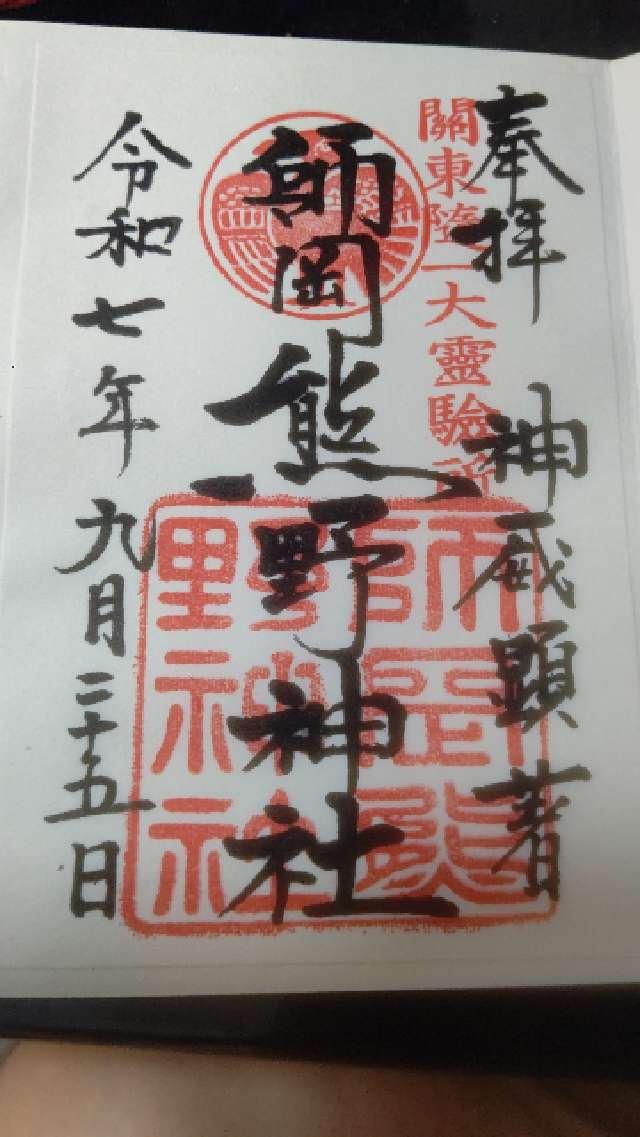 奉拝
神威顕著
關東隨一大靈驗所
師岡熊野神社
師岡熊野神社
令和七年九月二十五日